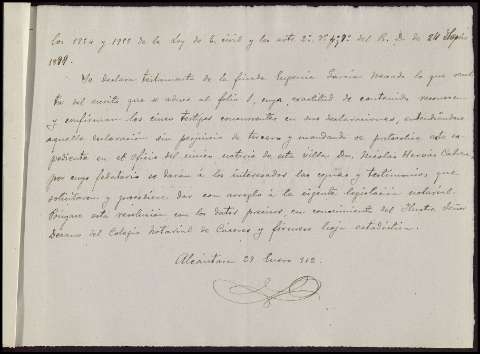 los 1954 y 1955 de la Ley de E. civil y los arts. 2º, 7º y 8º del R. D. de 24 Sepbre
1889.
Se declara testamento de la finada Eugenia Durán Macedo lo que resul-
ta del escrito que se aduce al folio 1, cuya exactitud de contenido reconocen
y confirman los cinco testigos concurrentes en sus declaraciones, entendiéndose
aquella declaración sin perjuicio de tercero y mandando se protocolice este ex-
pediente en el oficio del único notario de esta villa Don Nicolás
por cuyo fedatario se darán á los interesados las copias y testimonios que
solicitaren y procediere dar con arreglo á la vigente legislación notarial.
Póngase esta resolución con los datos precisos en conocimiento del Ilustre Señor
Decano del Colegio Notarial de Cáceres y fórmese hoja estadística.
Alcántara 29 Enero 912.